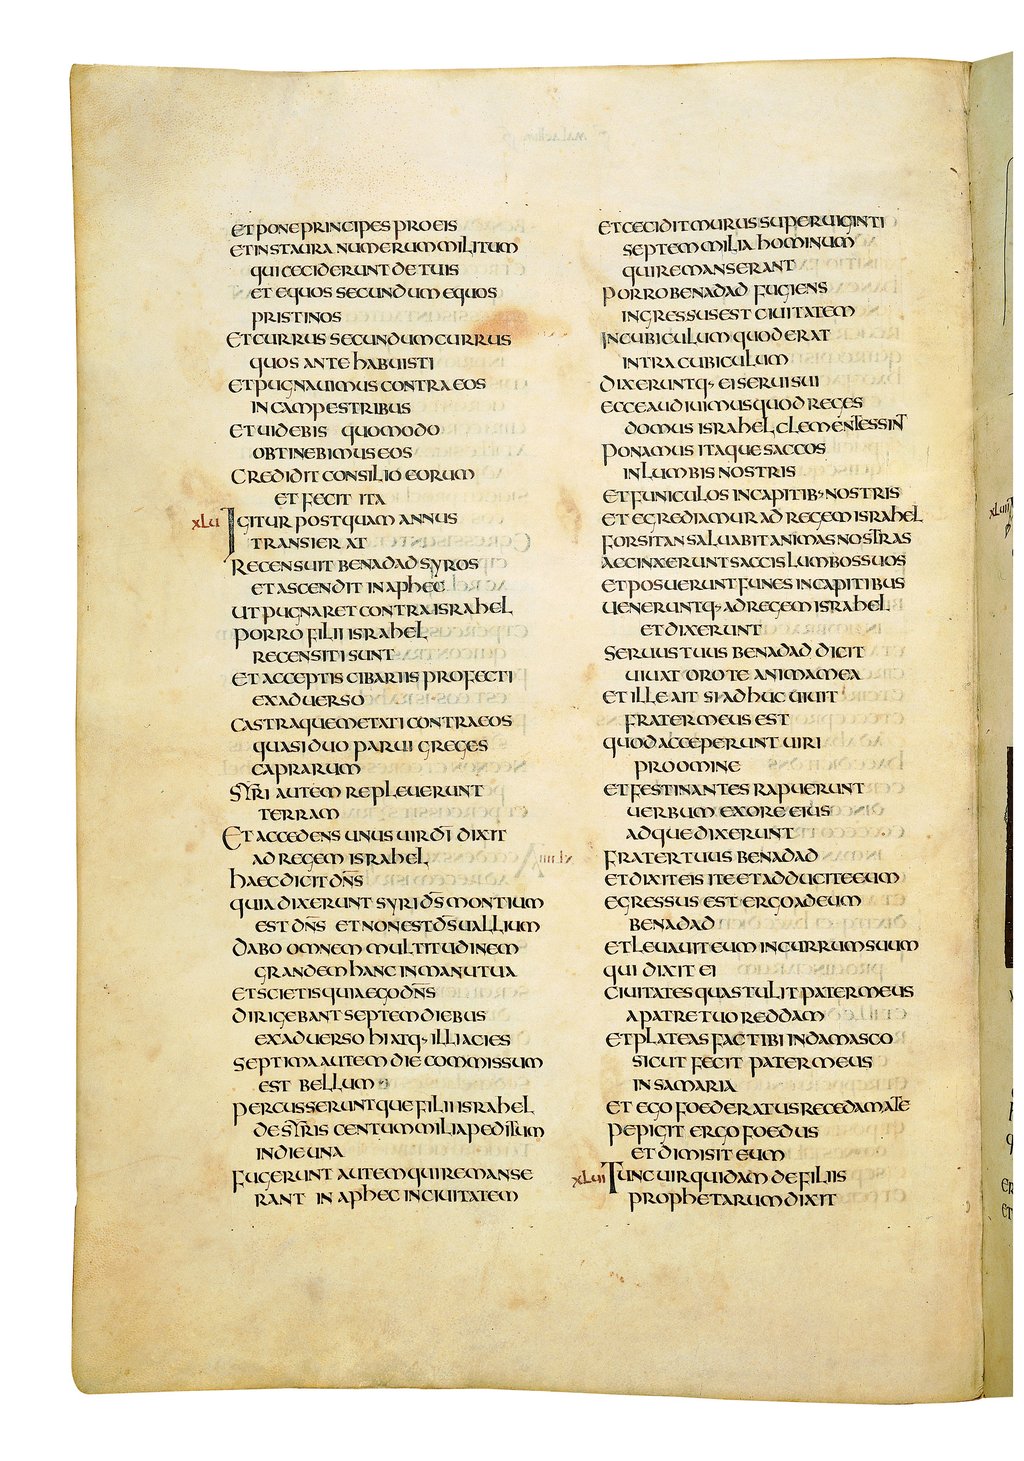 ET PONE PRINCIPES PRO EIS
ET INSTAURA NUMERUM MILITUM
QUI CECIDERUNT DE TUIS
ET EQUOS SECUNDUM EQUOS
PRISTINOS
ET CURRUS SECUNDUM CURRUS
QUOS ANTE HABUISTI
ET PUGNAUIMUS CONTRA EOS
IN CAMPESTRIBUS
ET UIDEBIS QUOMODO
OBTINEBIMUS EOS
CREDIDIT CONSILIO EORUM
ET FECIT ITA
XLUI IGITUR POSTQUAM ANNUS
TRANSIERAT
RECENSUIT BENADAD SYROS
ET ASCENDIT IN APHEC
UT PUGNARET CONTRA ISRAHEL
PORRO FILII ISRAHEL
RECENSITI SUNT
ET ACCEPTIS CIBARIIS PROFECTI
EX ADUERSO
CASTRAQUE METATI CONTRA EOS
QUASI DUO PARUI GREGES
CAPRARUM
SYRI AUTEM REPLEUERUNT
TERRAM
ET ACCEDENS UNUS UIR DĪ DIXIT
AD REGEM ISRAHEL
HAEC DICIT DN̄S
QUIA DIXERUNT SYRI DS̄ MONTIUM
EST DN̄S ET NON EST DS̄ UALLIUM
DABO OMNEM MULTITUDINEM
GRANDEM HANC IN MANU TUA
ET SCIETIS QUIA EGO DN̄S
DIRIGEBANT SEPTEM DIEBUS
EX ADUERSO HI ATQ· ILLI ACIES
SEPTIMA AUTEM DIE COMMISSUM
EST BELLUM
PERCUSSERUNTQUE FILII ISRAHEL
DE SYRIS CENTUM MILIA PEDITUM
IN DIE UNA
FUGERUNT AUTEM QUI REMANSE
RANT IN APHEC IN CIUITATEM
ET CECIDIT MURUS SUPER UIGINTI
SEPTEM MILIA HOMINUM
QUI REMANSERANT
PORRO BENADAD FUGIENS
INGRESSUS EST CIUITATEM
IN CUBICULUM QUOD ERAT
INTRA CUBICULUM
DIXERUNTQ· EI SERUI SUI
ECCE AUDIUIMUS QUOD REGES
DOMUS ISRAHEL CLEMENTES SINT
PONAMUS ITAQUE SACCOS
IN LUMBIS NOSTRIS
ET FUNICULOS IN CAPITIB· NOSTRIS
ET EGREDIAMUR AD REGEM ISRAHEL
FORSITAN SALUABIT ANIMAS NOSTRAS
ACCINXERUNT SACCIS LUMBOS SUOS
ET POSUERUNT FUNES IN CAPITIBUS
UENERUNTQ· AD REGEM ISRAHEL
ET DIXERUNT
SERUUS TUUS BENADAD DICIT
UIUAT ORO TE ANIMA MEA
ET ILLE AIT SI ADHUC UIUIT
FRATER MEUS EST
QUOD ACCEPERUNT UIRI
PRO OMINE
ET FESTINANTES RAPUERUNT
UERBUM EX ORE EIUS
ADQUE DIXERUNT
FRATER TUUS BENADAD
ET DIXIT EIS ITE ET ADDUCITE EUM
EGRESSUS EST ERGO AD EUM
BENADAD
ET LEUAUIT EUM IN CURRUM SUUM
QUI DIXIT EI
CIUITATES QUAS TULIT PATER MEUS
A PATRE TUO REDDAM
ET PLATEAS FAC TIBI IN DAMASCO
SICUT FECIT PATER MEUS
IN SAMARIA
ET EGO FOEDERATUS RECEDAM A TE
PEPIGIT ERGO FOEDUS
ET DIMISIT EUM
XLUII TUNC UIR QUIDAM DE FILIIS
PROPHETARUM DIXIT